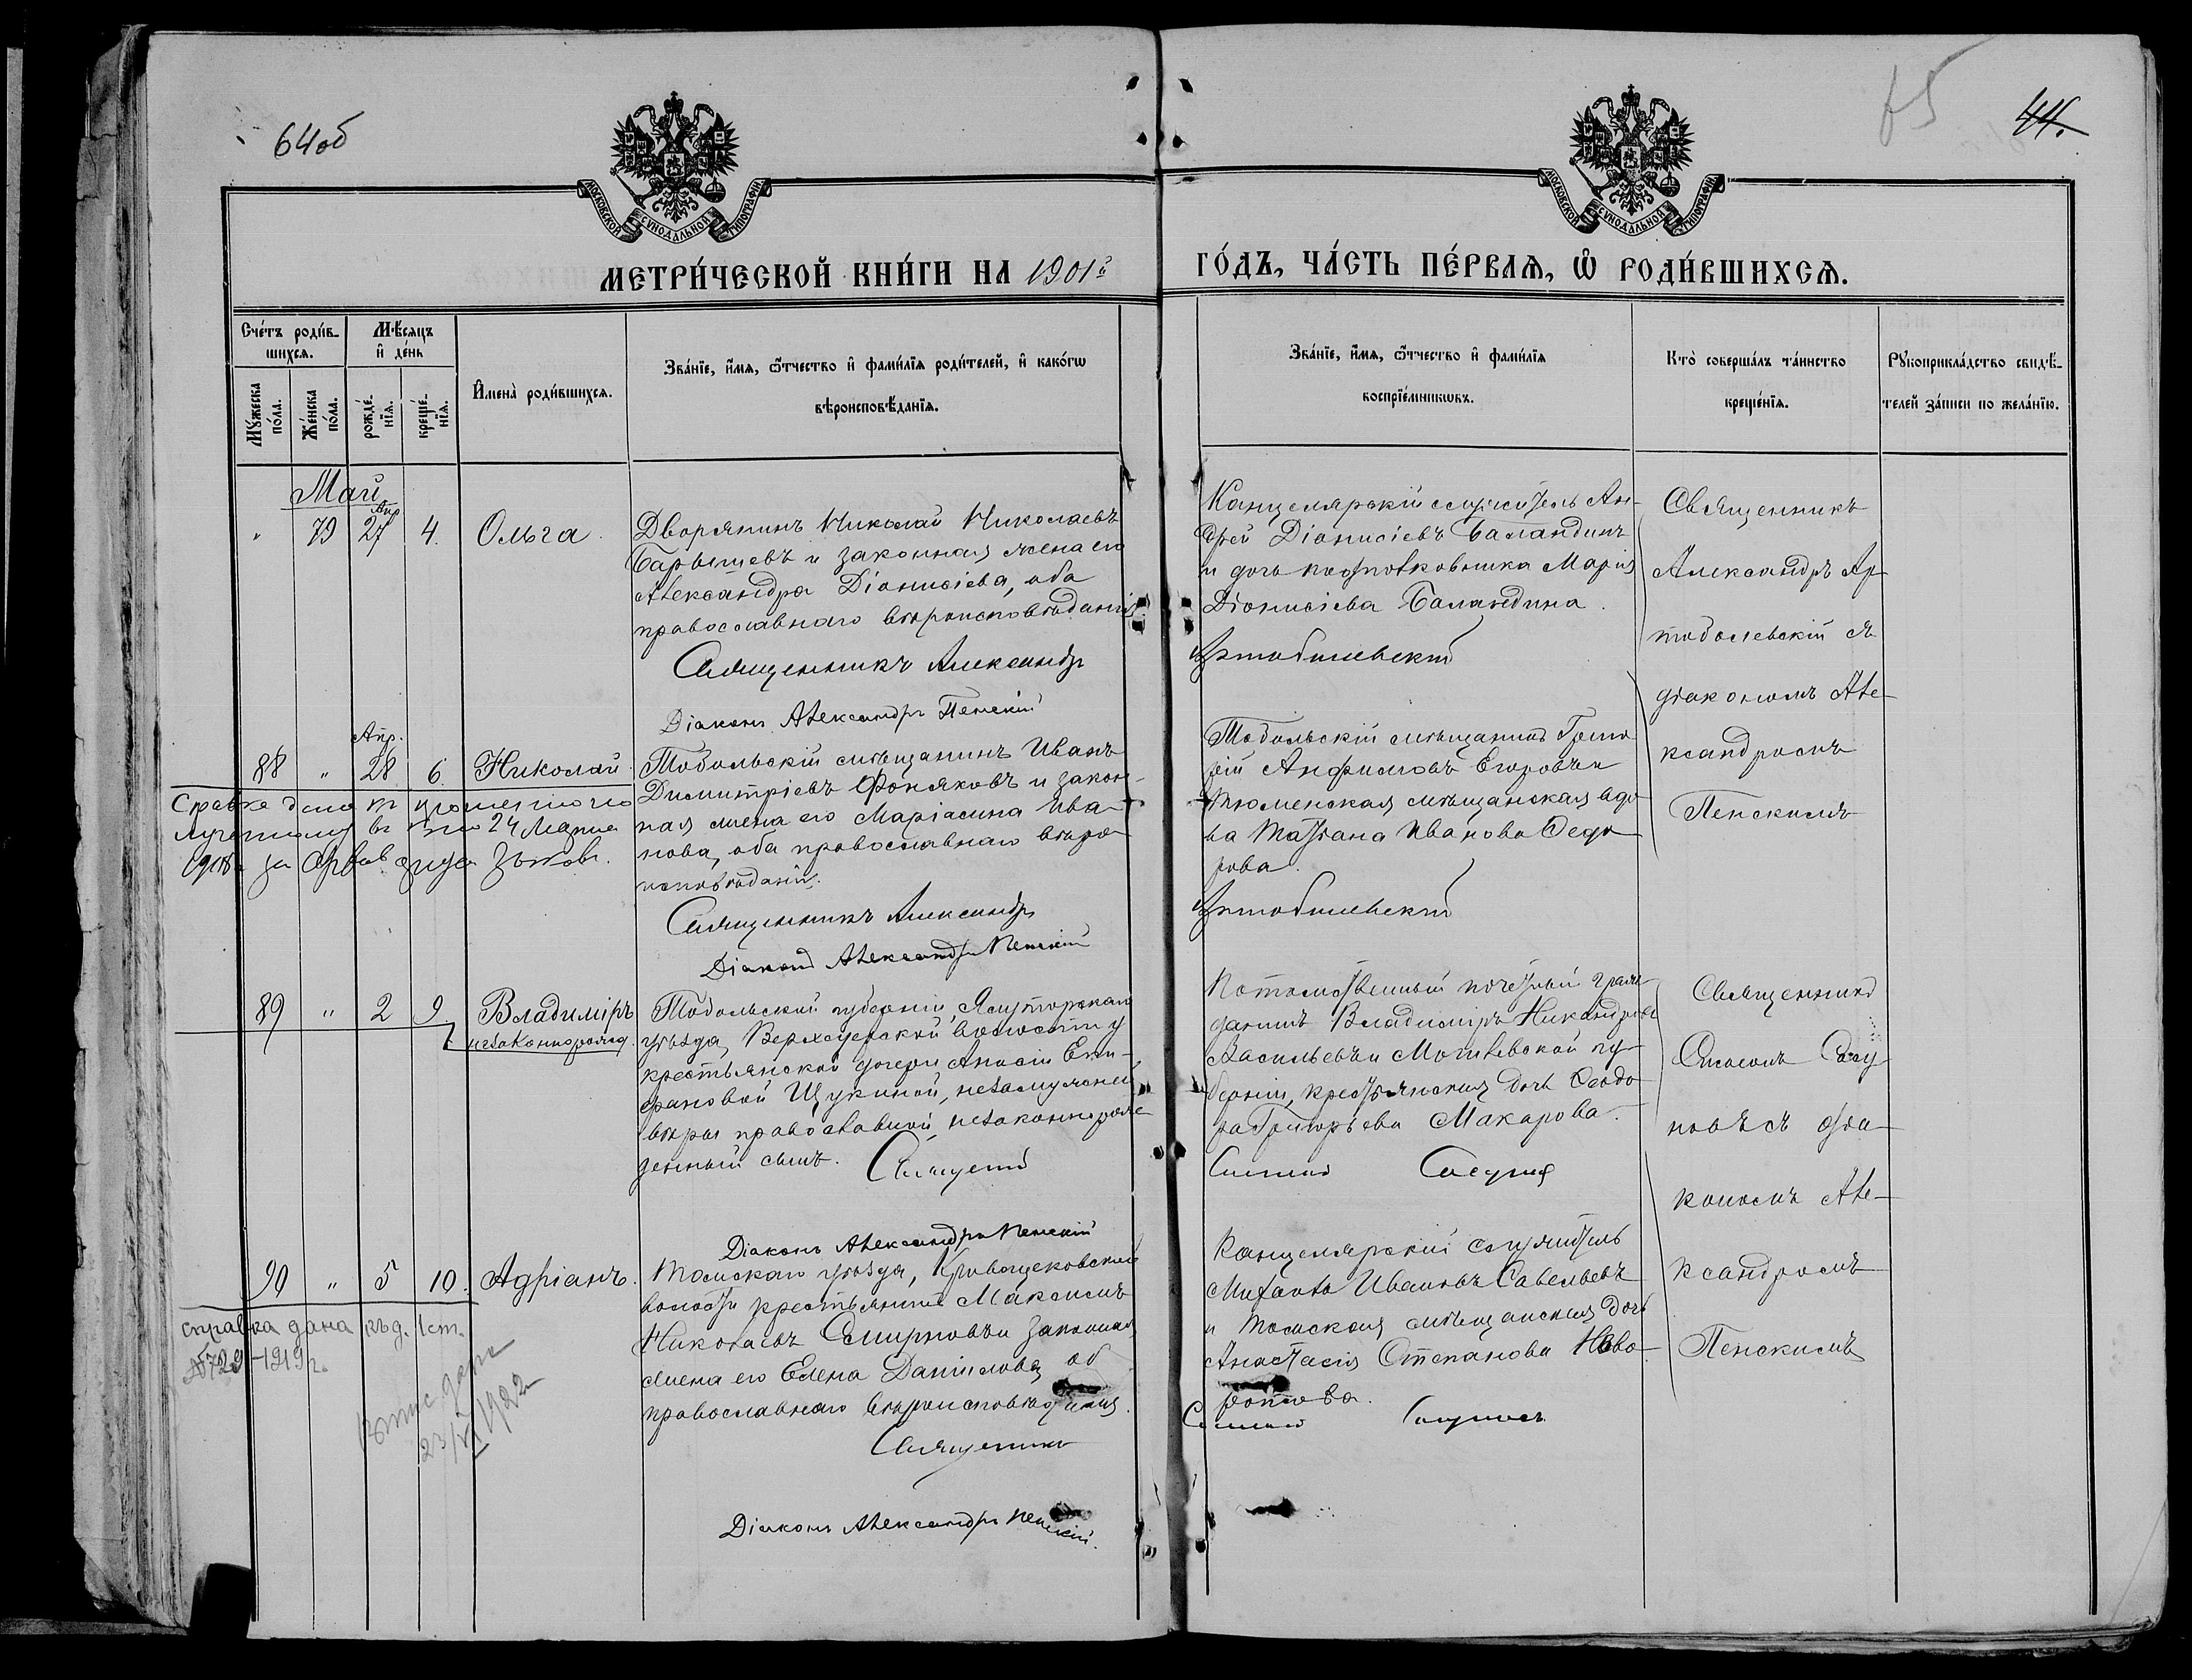 64об
65
44.
МОСКОВСКОЙ СѴНОДАЛЬНОЙ ТИПОГРАФІИ
МОСКОВСКОЙ СѴНОДАЛЬНОЙ ТИПОГРАФІИ
МЕТРИ́ЧЕСКОЙ КНИ́ГИ НА 1901й
ГО́ДЪ, ЧА́СТЬ ПЕ́РВАѦ, Ѡ҆ РОДИ́ВШИХСѦ.
Сче́тъ роди́в-
шихсѧ.
Мꙋ́жеска по́ла.
Же́нска по́ла.
Мѣ́сѧцъ
и҆ де́нь
рожде́-нїѧ.
креще́-нїѧ.
И҆мена̀ роди́вшихсѧ.
Зва́нїе, и҆́мѧ, ѻ҆́тчество и҆ фами́лїѧ роди́телей, и҆ како́гѡ
вѣроисповѣ́данїѧ.
Зва́нїе, и҆́мѧ, ѻ҆́тчество и҆ фами́лїѧ
воспрїе́мникѡвъ.
Кто̀ соверша́лъ та́инство
креще́нїѧ.
Рꙋкоприкла́дство свидѣ́-
телей за́писи по жела́нїю.
Май
Апр
" 79 27 4. Ольга.
Дворянинъ Николай Николаевъ
Барышевъ и законная жена его
Александра Діонисіева, оба
православнаго вѣроисповѣданія.
Священникъ Александръ
Діаконъ Александръ Пенскій
Канцелярскій служитель Ан-
дрей Діонисіевъ Баландинъ
и дочь подполковника Марія
Діонисіева Баландина.
Артоболевскій
Священникъ
Александръ Ар-
тоболевскій съ
діакономъ Але-
ксандромъ
Пенскимъ
Апр.
88 " 28 6. Николай
Справка дана
24 Марта
Тобольскій мѣщанинъ Иванъ
Димитріевъ Фоняковъ и закон-
ная жена его Маріамна Ива-
нова, оба православнаго вѣро-
исповѣданія.
Священникъ Александръ
Діаконъ Александръ Пенскій
Тобольскій мѣщанинъ Григо
рій Анфимовъ Егоровъ и
Тюменская мѣщанская вдо-
ва Татіана Иванова Ѳедо-
рова.
Артоболевскій
89 " 2 9. Владиміръ
незаконнорожд.
Тобольской губерніи, Ялуторскаго
уѣзда, Верхсуерской волости у
крестьянской дочери Анисіи Епи-
фановой Щукиной, незамужней
вѣры православной, незаконнорож-
денный сынъ. Священникъ
Діаконъ Александръ Пенскій
Потомственный почетный граж-
данинъ Владиміръ Никандровъ
Васильевъ и Могилевской гу-
берніи, крестьянская дочь Ѳеодо-
ра Григорьева Макарова.
Священникъ
Симеонъ Сосу-
новъ съ діа-
кономъ Але-
ксандромъ
Пенскимъ
90 " 5 10. Адріанъ.
справка дана къ д. 1 ст.
№729-1919г.
23/VI 1922
Томскаго уѣзда, Кривощековской
волости крестьянинъ Максимъ
Николаевъ Смирновъ и законная
жена его Елена Данілова, об
православнаго вѣроисповѣданія.
Священникъ
Діаконъ Александръ Пенскій.
Канцелярскій служитель
Михаилъ Ивановъ Савельевъ
и Томская мѣщанская дочь
Анастасія Степанова Ново-
ротова.